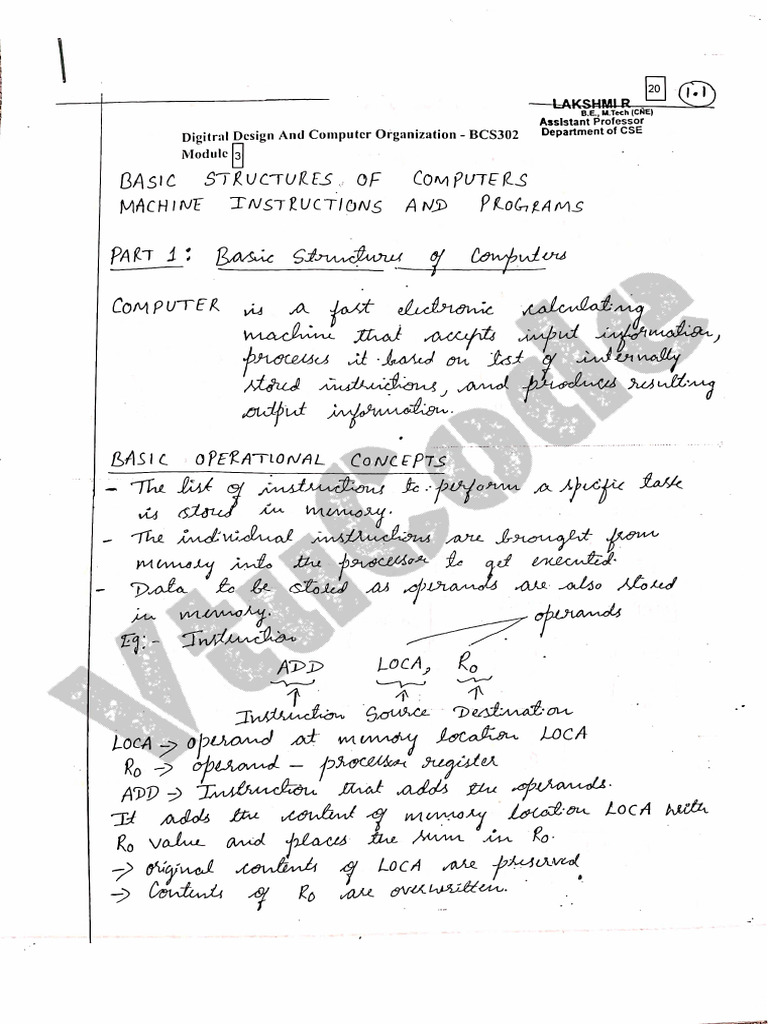 20
1.1
LAKSHMI R
B.E., M.Tech (CNE)
Assistant Professor
Department of CSE
Digitral Design And Computer Organization - BCS302
Module 3
BASIC STRUCTURES OF COMPUTERS
MACHINE INSTRUCTIONS AND PROGRAMS
PART 1: Basic Structures of Computers
COMPUTER is a fast electronic calculating
machine that accepts input information,
processes it based on list of internally
stored instructions, and produces resulting
output information.
BASIC OPERATIONAL CONCEPTS
- The list of instructions to perform a specific task
is stored in memory.
- The individual instructions are brought from
memory into the processor to get executed.
- Data to be stored as operands are also stored
in memory.
operands
Eg:- Instruction
ADD LOCA, R0
Instruction Source Destination
LOCA → operand at memory location LOCA
R0 → operand - processor register
ADD → Instruction that adds the operands.
It adds the content of memory location LOCA with
R0 value and places the sum in R0.
→ original contents of LOCA are preserved
→ Contents of R0 are overwritten.
VtuCode